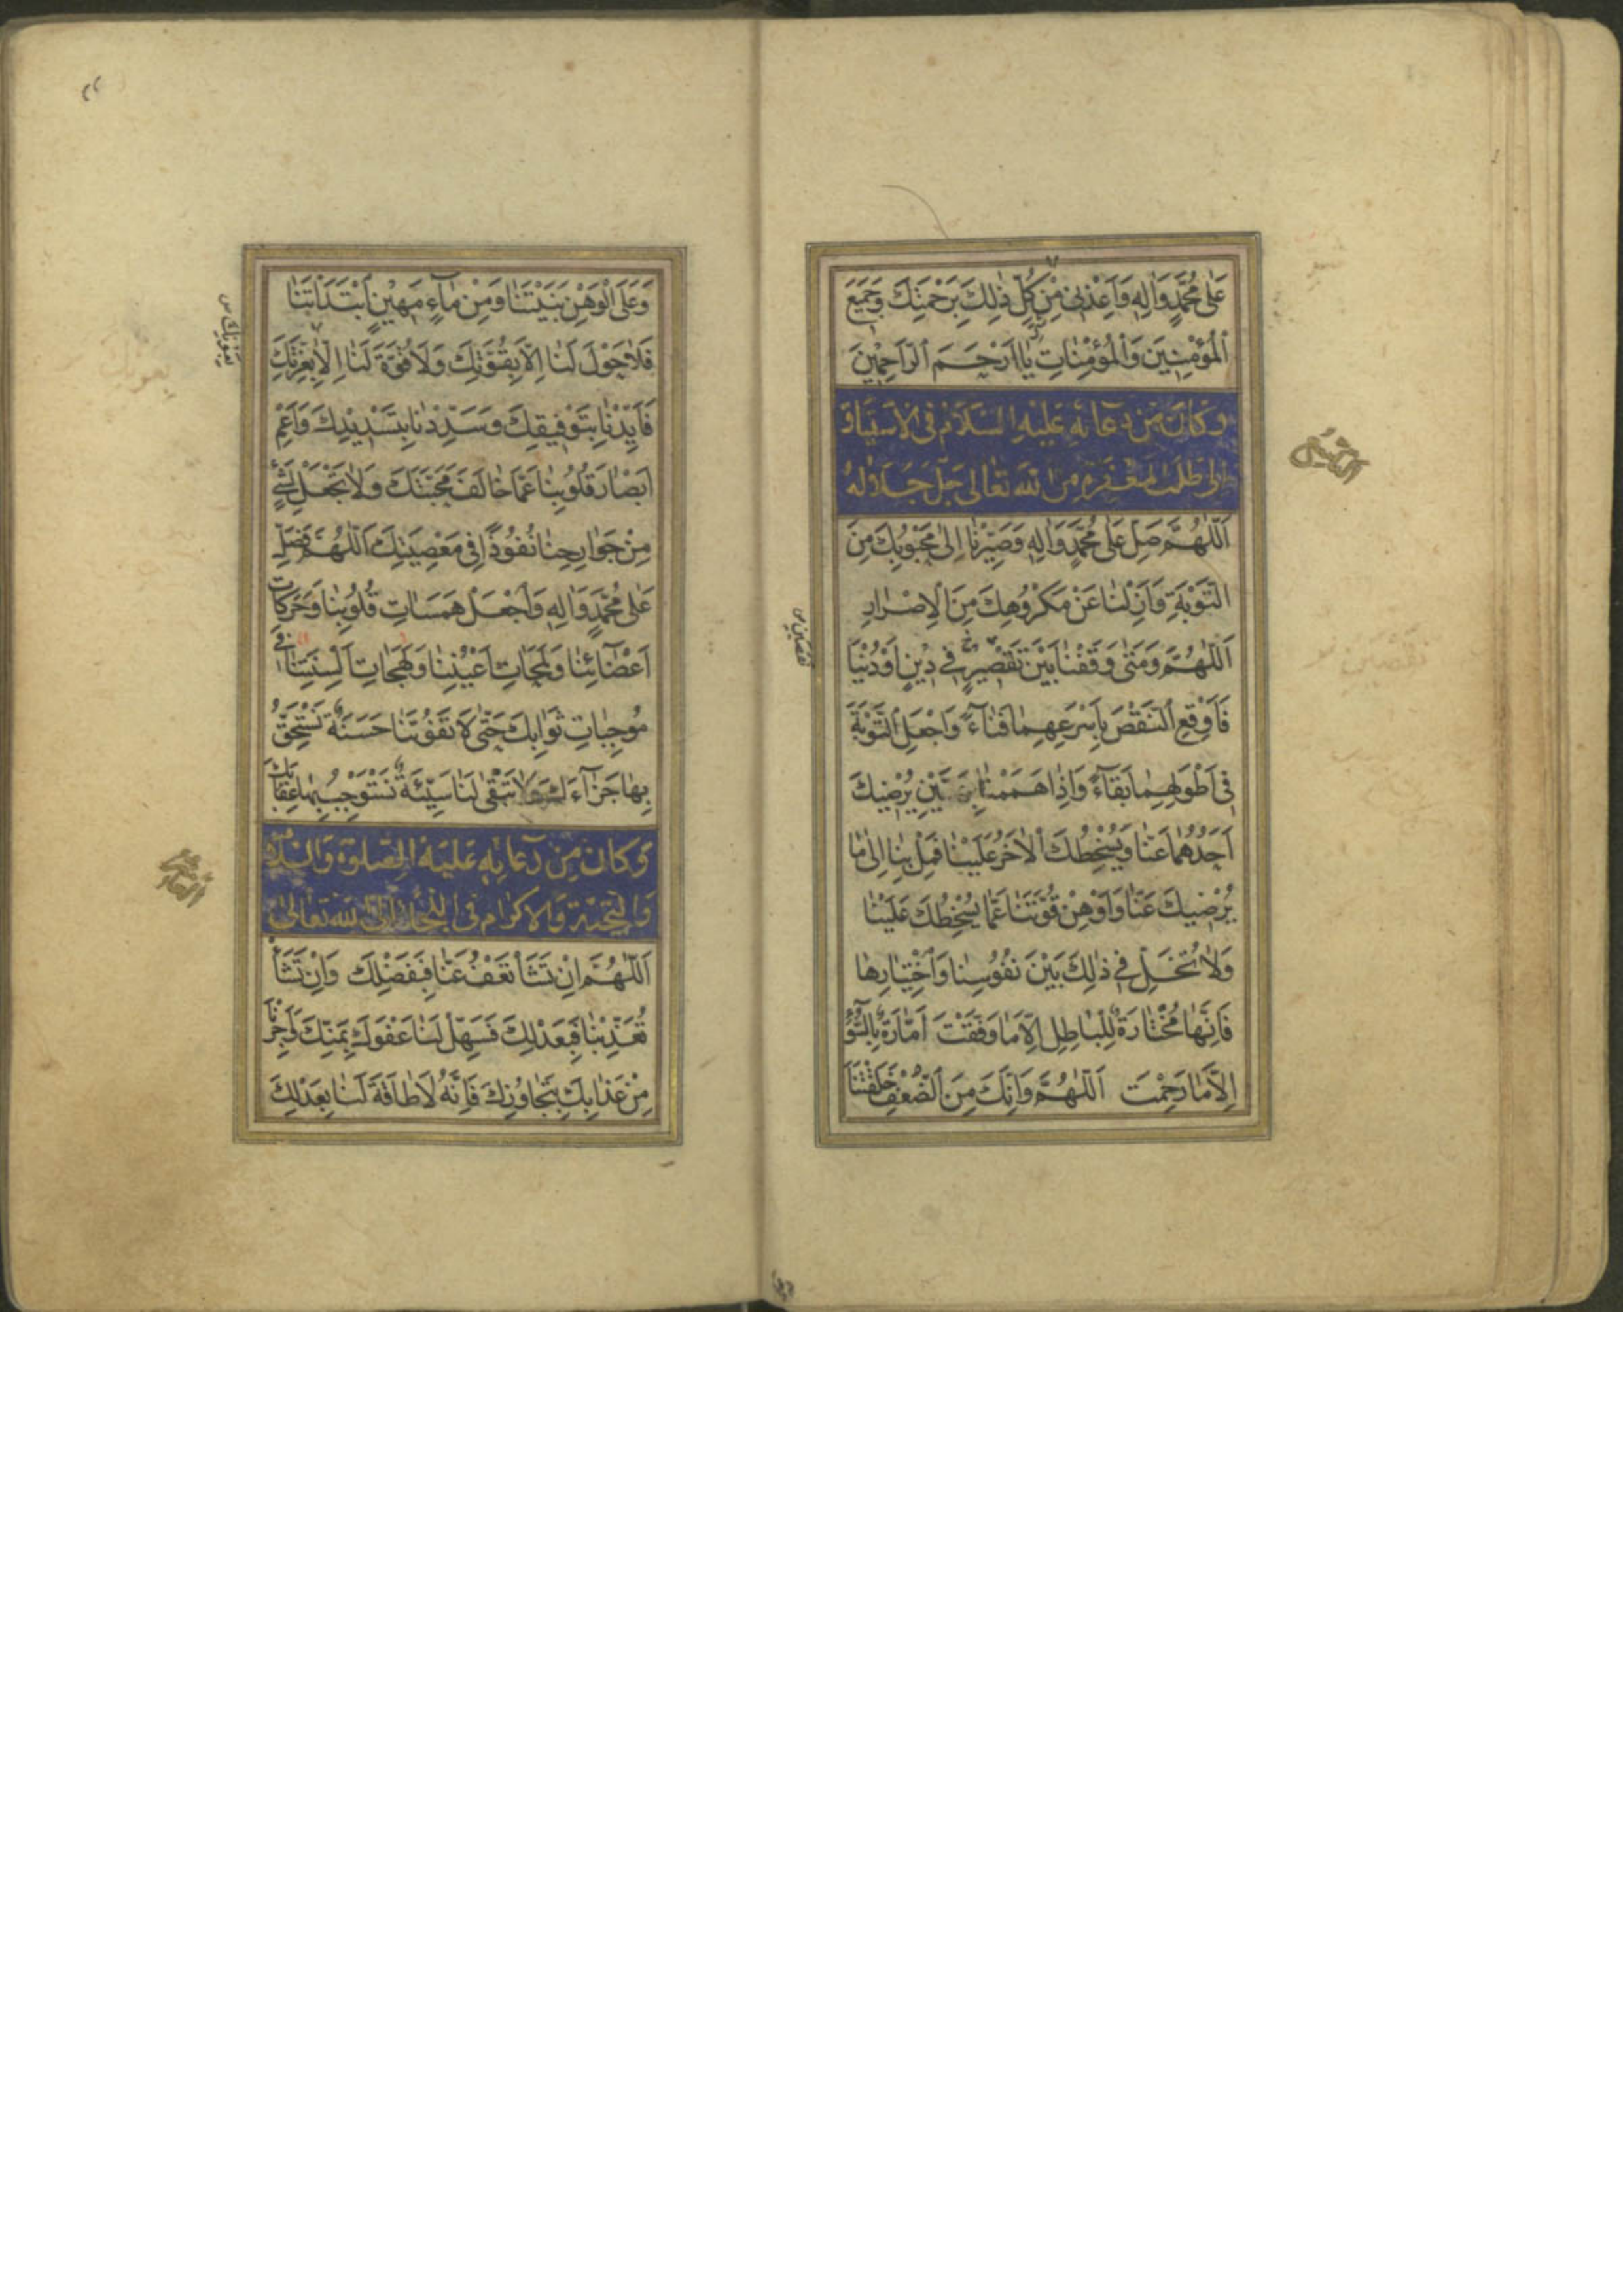 عَلٰى مُحَمَّدٍ وَاٰلِهٖ وَاَعِذْنِى مِنْ كُلِّ ذٰلِكَ بِرَحْمَتِكَ وَجَمِيعَ
ٱلْمُؤْمِنِينَ وَٱلْمُؤْمِنٰاتِ يٰا اَرْحَمَ ٱلرّٰاحِمِينَ
وَكَانَ مِنْ دُعَائِهٖ عَلَيْهِ السَّلَامُ فِى الْاِشْتِيَاقِ
اِلٰى طَلَبِ الْمَغْفِرَةِ مِنَ اللّٰهِ تَعَالٰى جَلَّ جَلَالُهُ
اَللّٰهُمَّ صَلِّ عَلٰى مُحَمَّدٍ وَاٰلِهٖ وَصَيِّرْنٰا اِلٰى مَحْبُوبِكَ مِنَ
ٱلتَّوْبَةِ وَاَزِلْنٰا عَنْ مَكْرُوهِكَ مِنَ ٱلْاِصْرٰارِ
اَللّٰهُمَّ وَمَتٰى وَقَفْنٰا بَيْنَ نَقْصَيْنِ فِى دِينٍ اَوْ دُنْيٰا
فَاَوْقِعِ ٱلنَّقْصَ بِاَسْرَعِهِمٰا فَنٰاءً وَاجْعَلِ ٱلتَّوْبَةَ
فِى اَطْوَلِهِمٰا بَقٰاءً وَاِذٰا هَمَمْنٰا بِهَمَّيْنِ يُرْضِيكَ
اَحَدُهُمٰا عَنّٰا وَيُسْخِطُكَ ٱلْاٰخَرُ عَلَيْنٰا فَمِلْ بِنٰا اِلٰى مٰا
يُرْضِيكَ عَنّٰا وَاَوْهِنْ قُوَّتَنٰا عَمّٰا يُسْخِطُكَ عَلَيْنٰا
وَلٰا تُخَلِّ فِى ذٰلِكَ بَيْنَ نُفُوسِنٰا وَٱخْتِيٰارِهٰا
فَاِنَّهٰا مُخْتٰارَةٌ لِلْبٰاطِلِ اِلّٰا مٰا وَفَّقْتَ اَمّٰارَةٌ بِالسُّوءِ
اِلّٰا مٰا رَحِمْتَ اَللّٰهُمَّ وَاِنَّكَ مِنَ ٱلضُّعْفِ خَلَقْتَنٰا
نقصين س
وَعَلَى ٱلْوَهْنِ بَنَيْتَنٰا وَمِنْ مٰاءٍ مَهِينٍ ٱبْتَدَاْتَنٰا
فَلٰا حَوْلَ لَنٰا اِلّٰا بِقُوَّتِكَ وَلٰا قُوَّةَ لَنٰا اِلّٰا بِعِزَّتِكَ
فَاَيِّدْنٰا بِتَوْفِيقِكَ وَسَدِّدْنٰا بِتَسْدِيدِكَ وَاَعْمِ
اَبْصٰارَ قُلُوبِنٰا عَمّٰا خٰالَفَ مَحَبَّتَكَ وَلٰا تَجْعَلْ لِشَىْءٍ
مِنْ جَوٰارِحِنٰا نُفُوذًا فِى مَعْصِيَتِكَ اَللّٰهُمَّ فَصَلِّ
عَلٰى مُحَمَّدٍ وَاٰلِهٖ وَٱجْعَلْ هَمَسٰاتِ قُلُوبِنٰا وَحَرَكٰاتِ
اَعْضٰائِنٰا وَلَمَحٰاتِ اَعْيُنِنٰا وَلَهَجٰاتِ اَلْسِنَتِنٰا فِى
مُوجِبٰاتِ ثَوٰابِكَ حَتّٰى لٰا تَفُوتَنٰا حَسَنَةٌ نَسْتَحِقُّ
بِهٰا جَزٰاءَكَ وَلٰا تَبْقٰى لَنٰا سَيِّئَةٌ نَسْتَوْجِبُ بِهٰا عِقٰابَكَ
وَكَانَ مِنْ دُعَائِهٖ عَلَيْهِ الصَّلٰوةُ وَالسَّلَامُ
وَالتَّحِيَّةُ وَالْاِكْرَامُ فِى اللَّجَاِ اِلَى اللّٰهِ تَعَالٰى
اَللّٰهُمَّ اِنْ تَشَاْ تَعْفُ عَنّٰا فَبِفَضْلِكَ وَاِنْ تَشَاْ
تُعَذِّبْنٰا فَبِعَدْلِكَ فَسَهِّلْ لَنٰا عَفْوَكَ بِمَنِّكَ وَاَجِرْنٰا
مِنْ عَذٰابِكَ بِتَجٰاوُزِكَ فَاِنَّهُ لٰا طٰاقَةَ لَنٰا بِعَدْلِكَ